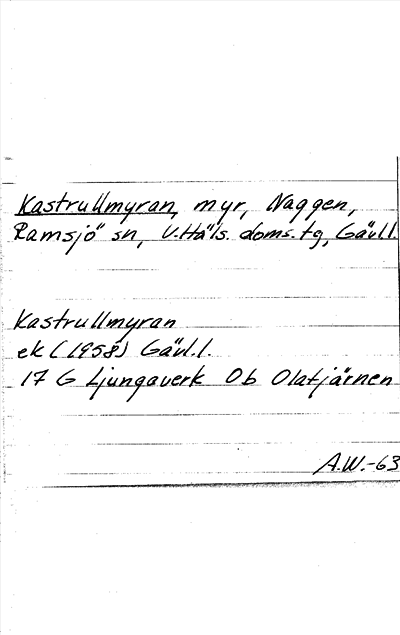 Kastrullmyran, myr, Naggen,
Ramsjö sn, V. Häls. doms. tg, Gävl.l.
Kastrullmyran
ek (1958) Gävl.l.
17 G Ljungaverk 0b Olatjärnen
A.W.-63